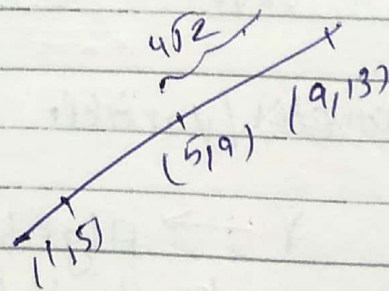 4√2
(9,13)
(5,9)
(1,5)